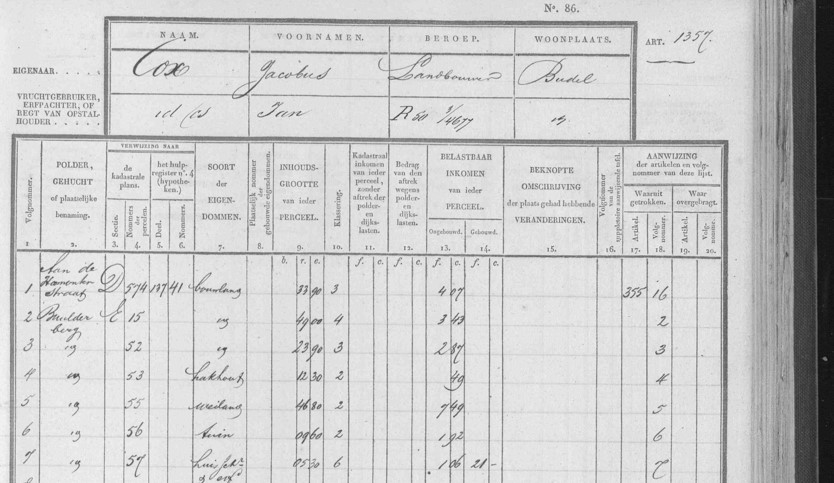 No. 86.
NAAM. VOORNAMEN. BEROEP. WOONPLAATS. ART. 1357.
EIGENAAR. . . . . Cox Jacobus Landbouwer Budel
VRUCHTGEBRUIKER,
ERFPACHTER, OF
REGT VAN OPSTAL
HOUDER . . . . . id Jan R 50
VERWIJZING NAAR
Volgnummer. POLDER, GEHUCHT of plaatselijke benaming. de kadastrale plans. het hulpregister n°. 4 (hypotheken.) SOORT DER EIGENDOMMEN. Plaatselijk nummer der gebouwde eigendommen. INHOUDSGROOTTE van ieder PERCEEL. Klassering. Kadastraal inkomen van ieder perceel, zonder aftrek der polder- en dijkslasten. Bedrag van den aftrek wegens polder- en dijkslasten. BELASTBAAR INKOMEN van ieder PERCEEL. BEKNOPTE OMSCHRIJVING der plaats gehad hebbende VERANDERINGEN. AANWIJZING der artikelen en volgnommer van deze lijst.
Sectie. Nommers der perceelen. Deel. Nommers. Ongebouwd. Gebouwd. Waaruit getrokken. Waar overgebragt.
Artikel. Volgnommer. Artikel. Volgnommer.
1 2. 3. 4. 5. 6. 7. 8. 9. 10. 11. 12. 13. 14. 15. 16. 17. 18. 19. 20.
b. r. e. f. c. f. c. f. c. f. c.
Aan de
1 Straat D 574 137 41 bouwland 33 90 3 4 07 355 16
2 Buulder E 15 id 49 00 4 3 43 2
berg
3 id 52 id 23 90 3 2 87 3
4 id 53 hakhout 12 30 2 49 4
5 id 55 weiland 46 80 2 7 49 5
6 id 56 tuin 09 60 2 1 92 6
7 id 57 huis schr 05 30 6 1 06 21 - 7
& erf